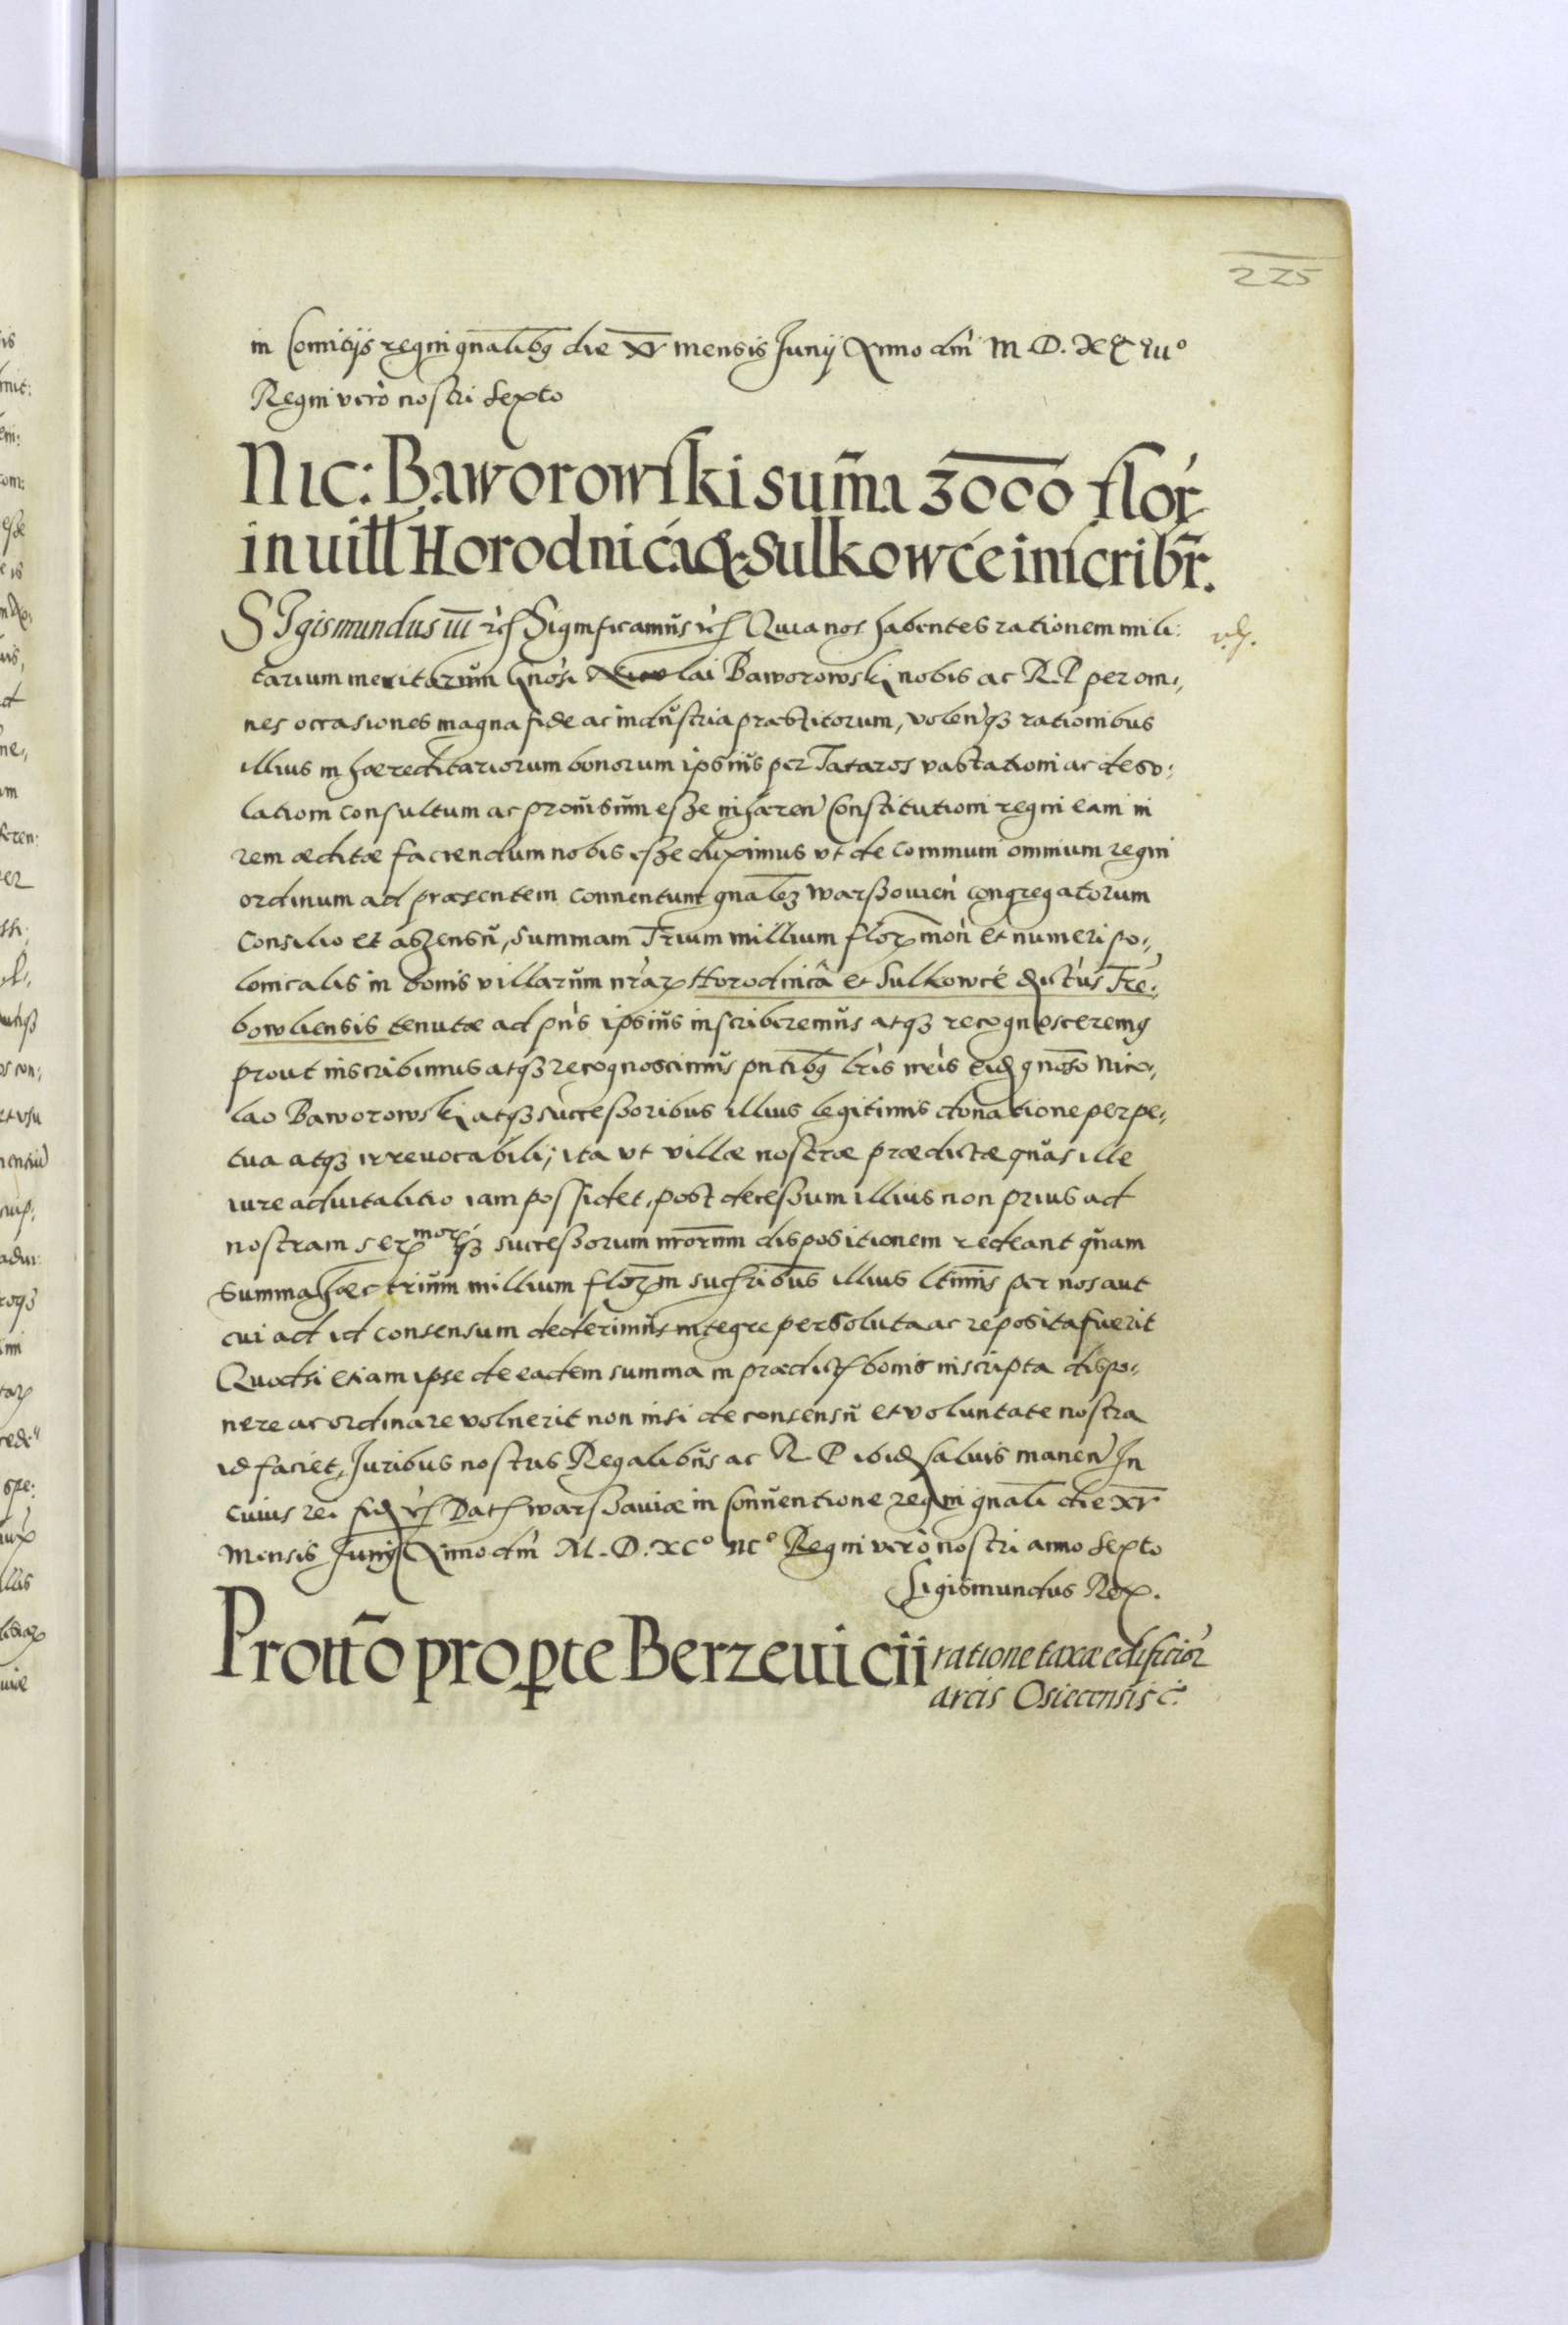 225
in Comitijs regni gnalibq die xv mensis Junij Anno dni M.D.XC
Regni vero nostri sexto
Nic: Baworowski sum̃a 3000 flor
in uill Horodnica & Sulkowce inscribr̃.
SIgismundus iii rc̃ Significamus rc̃ Quia nos habentes rationem mili:
tarium meritarum gnosi Nicolai Baworowskj nobis ac R.P per om:,
nes occasiones magna fide ac industria praestitorum, volenq₃ rationibus
illius in haereditariorum bonorum ipsius per Tataros vastationi ac deso:
lationi consultum ac prouisum esse inhaeren Constitutioni regni eam in
rem aeditae faciendum nobis esse duximus vt de communi omnium regni
ordinum ad praesentem conuentum gnalez warssouien congregatorum
Consilio et assensu, summam Trium millium flor mon et numeri po:,
lonicalis in bonis villarum nrar Horodnica et Sulkowce dictus Tre:,
bowliensis tenutae ad pns ipsius inscriberemus atq₃ recognosceremq
prout inscribimus atq₃ recognoscimus pntibq lris nris eid gnoso Nico:,
lao Baworowskj atq₃ successoribus illius legitimis donatione perpe:,
tua atq₃ irreuocabili; ita vt villae nostrae praedictae quas ille
iure aduitalitio iam possidet, post decessum illius non prius ad
nostram ser mor q₃ successorum nrorum dispositionem redeant quam
summa haec trium millium flor m sucribus illius ltimis per nos aut
cui ad id consensum dederimus integre persoluta ac reposita fuerit
Quodsi etiam ipse de eadem summa in praedict bonis inscripta dispo:,
nere ac ordinare voluerit non nisi de consensu et voluntate nostra
id faciet, Juribus nostris Regalibus ac R P ibid saluis manen In
cuius rei fid rc̃ Dat warssauiae in Conuentione regni gnali die xv
Mensis Junij Anno dni M.D.XC° Regni vero nostri anno sexto
Sigismundus Rex.
Prottõ pro parte Berzeuicii ratione taxae edificior
arcis Osiecensis